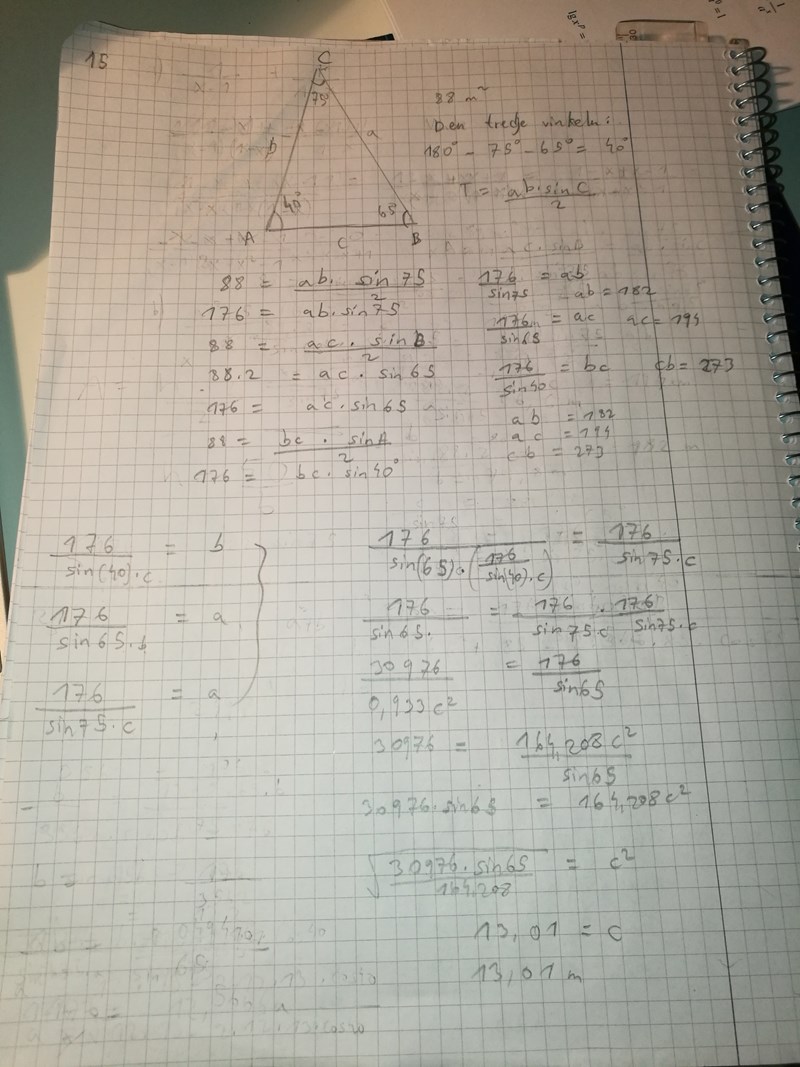 15
C
75°
b
a
40°
65°
A
c
B
88 m²
Den tredje vinkeln:
180° - 75° - 65° = 40°
T = ab·sin C / 2
88 = ab · sin 75 / 2
176 = ab · sin 75
88 = ac · sin B / 2
88·2 = ac · sin 65
176 = ac · sin 65
88 = bc · sin A / 2
176 = bc · sin 40°
176 / sin 75 = ab ab = 182
176 / sin 65 = ac ac = 194
176 / sin 40 = bc cb = 273
ab = 182
ac = 194
cb = 273
176 / sin(40)·c = b
176 / sin 65·b = a
176 / sin 75·c = a
176 / sin(65)·(176 / sin(40)·c) = 176 / sin 75·c
176 / sin 65· = 176 / sin 75·c · 176 / sin 75·c
30976 / 0,933c² = 176 / sin 65
30976 = 164,208c² / sin 65
30976·sin 65 = 164,208c²
√(30976·sin 65 / 164,208) = c²
13,01 = c
13,01 m